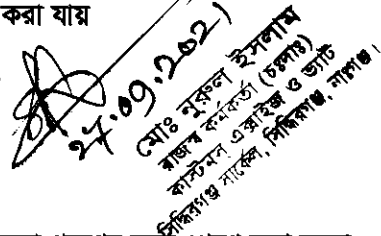 করা যায়
27.09.2021
মোঃ নুরুল ইসলাম
রাজস্ব কর্মকর্তা (চঃদাঃ)
কাস্টমস এক্সাইজ ও ভ্যাট
সিদ্ধিরগঞ্জ সার্কেল, সিদ্ধিরগঞ্জ, নাঃগঞ্জ।